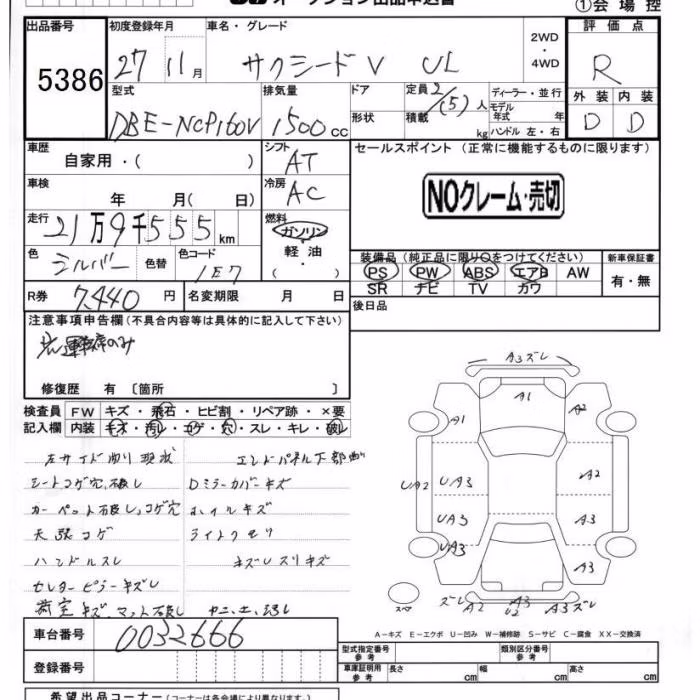 オークション出品申込書 ①会場控
出品番号 初度登録年月 車名・グレード 2WD・4WD 評価点
5386 27 11月 サクシードV UL R
型式 排気量 ドア 定員 2/(5)人 ディーラー・並行 外装 内装
DBE-NCP160V 1500cc 形状 積載 kg モデル年式 年 ハンドル 左・右 D D
車歴 シフト セールスポイント (正常に機能するものに限ります)
自家用・( ) AT
車検 冷房 NOクレーム・売切
年 月( 日) AC
走行 燃料
21万9千555km ガソリン
色 色替 色コード 軽油 装備品 (純正品に限り○をつけてください) 新車保証書
シルバー 1E7 ・( ) PS PW ABS エアB AW 有・無
SR ナビ TV カワ
R券 7,440円 名変期限 月 日 後日品
注意事項申告欄 (不具合内容等は具体的に記入して下さい)
運転席のみ
修復歴 有 〔箇所 〕
検査員 FW キズ・飛石・ヒビ割・リペア跡・×要
記入欄 内装 キズ・汚レ・コゲ・穴・スレ・キレ・破レ
左サイド内 現状 エンドパネル下部曲
シートコゲ穴、破レ Dミラーカバーキズ
カーペット破レ、コゲ穴 ホイルキズ
天張コゲ ライトクモリ
ハンドルスレ キズUスリキズ
センターピラーキズ
荷室キズ、マット破レ ヤニ、土、汚レ
A3ズレ
A1
A1 A2
UA2 UA3 A2
UA3 A3
UA3 A3
スペア
ズレ A2 U2 A3 A3ズレ
A-キズ E-エクボ U-凹み W-補修跡 S-サビ C-腐食 XX-交換済
車台番号 0032666
登録番号
型式指定番号 参考 類別区分番号 参考
車庫証明用 参考 長さ cm 幅 cm 高さ cm
希望出品コーナー (コーナーは各会場により異なります)